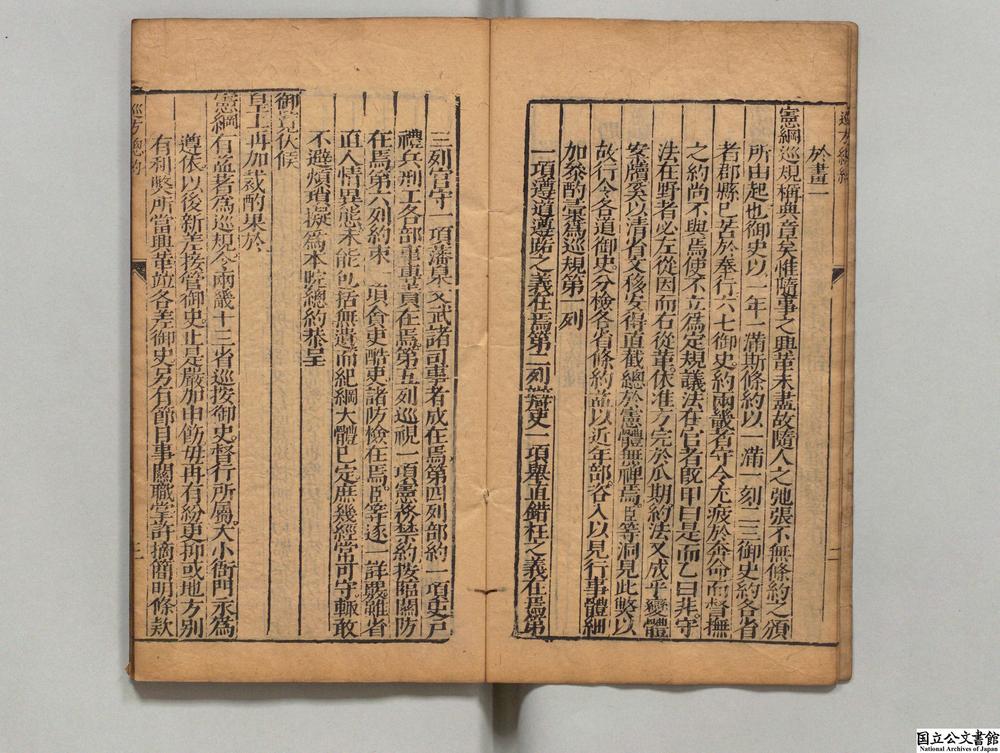 於畫一
憲綱巡規稱典章矣惟隨事之興革未盡故隨人之弛張不無條約之頒
所由起也御史以一年一滿斯條約以一滿一刻二三御史約各省
者郡縣已苦於奉行六七御史約兩畿者守令尤疲於奔命而督撫
之約尚不與焉使不立為定規議法在官者既甲曰是而乙曰非守
法在野者必左從因而右從革依准方完於瓜期約法又成乎變體
案牘奚以清省文移安得直截總於憲體無裨焉臣等洞見此弊以
故行令各道御史分檢各省條約益以近年部咨入以見行事體細
加叅酌彙為巡規第一列
一項遵道遵路之義在焉第二列辯吏一項舉直錯枉之義在焉第
三列官守一項藩臬文武諸司事者成在焉第四列部約一項吏戶
禮兵刑工各部重專責在焉第五列巡視一項憲務禁約按臨關防
在焉第六列約束一項貪吏酷吏諸防檢在焉臣等逐一詳畿雖省
直人情異態未能包括無遺而紀綱大體已定庶幾經常可守輒敢
不避煩瑣擬為本院總約恭呈
御覽伏候
皇上再加裁酌果於
憲綱有益著為巡規令兩畿十三省巡按御史督行所屬大小衙門永為
遵依以後新差接管御史止是嚴加申飭毋再有紛更抑或地方別
有利弊所當興革竝各差御史另有節目事關職掌許摘簡明條款
巡方總約
二
巡方總約
三
国立公文書館
National Archives of Japan